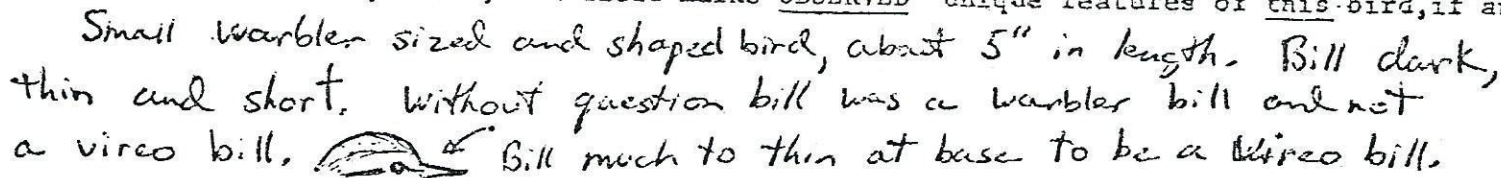 OBSERVED unique features of this bird, if a
Small warbler sized and shaped bird, about 5" in length. Bill dark,
thin and short. Without question bill was a warbler bill and not
a vireo bill. Bill much to thin at base to be a Vireo bill.